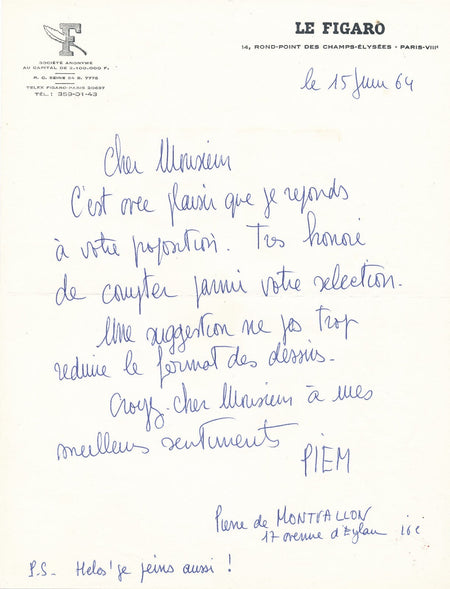 LE FIGARO
14, ROND-POINT DES CHAMPS-ÉLYSÉES - PARIS-VIIIᵉ
F
SOCIÉTÉ ANONYME
AU CAPITAL DE 2.100.000 F.
R. C. SEINE 54 B. 7776
TELEX FIGARO-PARIS
TÉL. : 359-01-43
le 15 Juin 64
Cher Monsieur
C'est avec plaisir que je reponds
à votre proposition. Tres honoré
de compter parmi votre selection.
Une suggestion ne pas trop
reduire le format des dessins.
Croyez cher Monsieur à mes
meilleurs sentiments
PIEM
Pierre de MONTVALLON
17 avenue d'Eylau
P.S. - Helas ! je peins aussi !